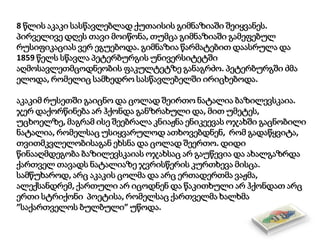 8 წლის აკაკი სასწავლებლად ქუთაისის გიმნაზიაში შეიყვანეს.
პირველივე დღეს თავი მოიწონა, თუმცა გიმნაზიაში გამეფებულ
რუსიფიკაციას ვერ ეგუებოდა. გიმნაზია წარმატებით დაასრულა და
1859 წელს სწავლა პეტერბურგის უნივერსიტეტში
აღმოსავლეთმცოდნეობის ფაკულტეტზე განაგრძო. პეტერბურგში ძმა
ელოდა, რომელიც სამხედრო სასწავლებელში ირიცხებოდა.
აკაკიმ რუსეთში გაიცნო და ცოლად შეირთო ნატალია ბაზილევსკაია.
ჯერ დაქორწინება არ ჰქონდა განზრახული და, მით უმეტეს,
უცხოელზე, მაგრამ ისე შეებრალა კნიაჟნა ენიკეევას ოჯახში გაცნობილი
ნატალია, რომელსაც უსიყვარულოდ ათხოვებდნენ, რომ გადაწყვიტა,
თვითმკვლელობისაგან ეხსნა და ცოლად შეერთო. დიდი
წინააღმდეგობა ბაზილევსკაიას ოჯახსაც არ გაუწევია და ახალგაზრდა
ქართველ თავადს ნატალიაზე ჯვრისწერის კურთხევა მისცა.
სამწუხაროდ, არც აკაკის ცოლმა და არც ერთადერთმა ვაჟმა,
ალექსანდრემ, ქართული არ იცოდნენ და წაკითხული არ ჰქონდათ არც
ერთი სტრიქონი პოეტისა, რომელსაც ქართველმა ხალხმა
”საქართველოს ბულბული” უწოდა.